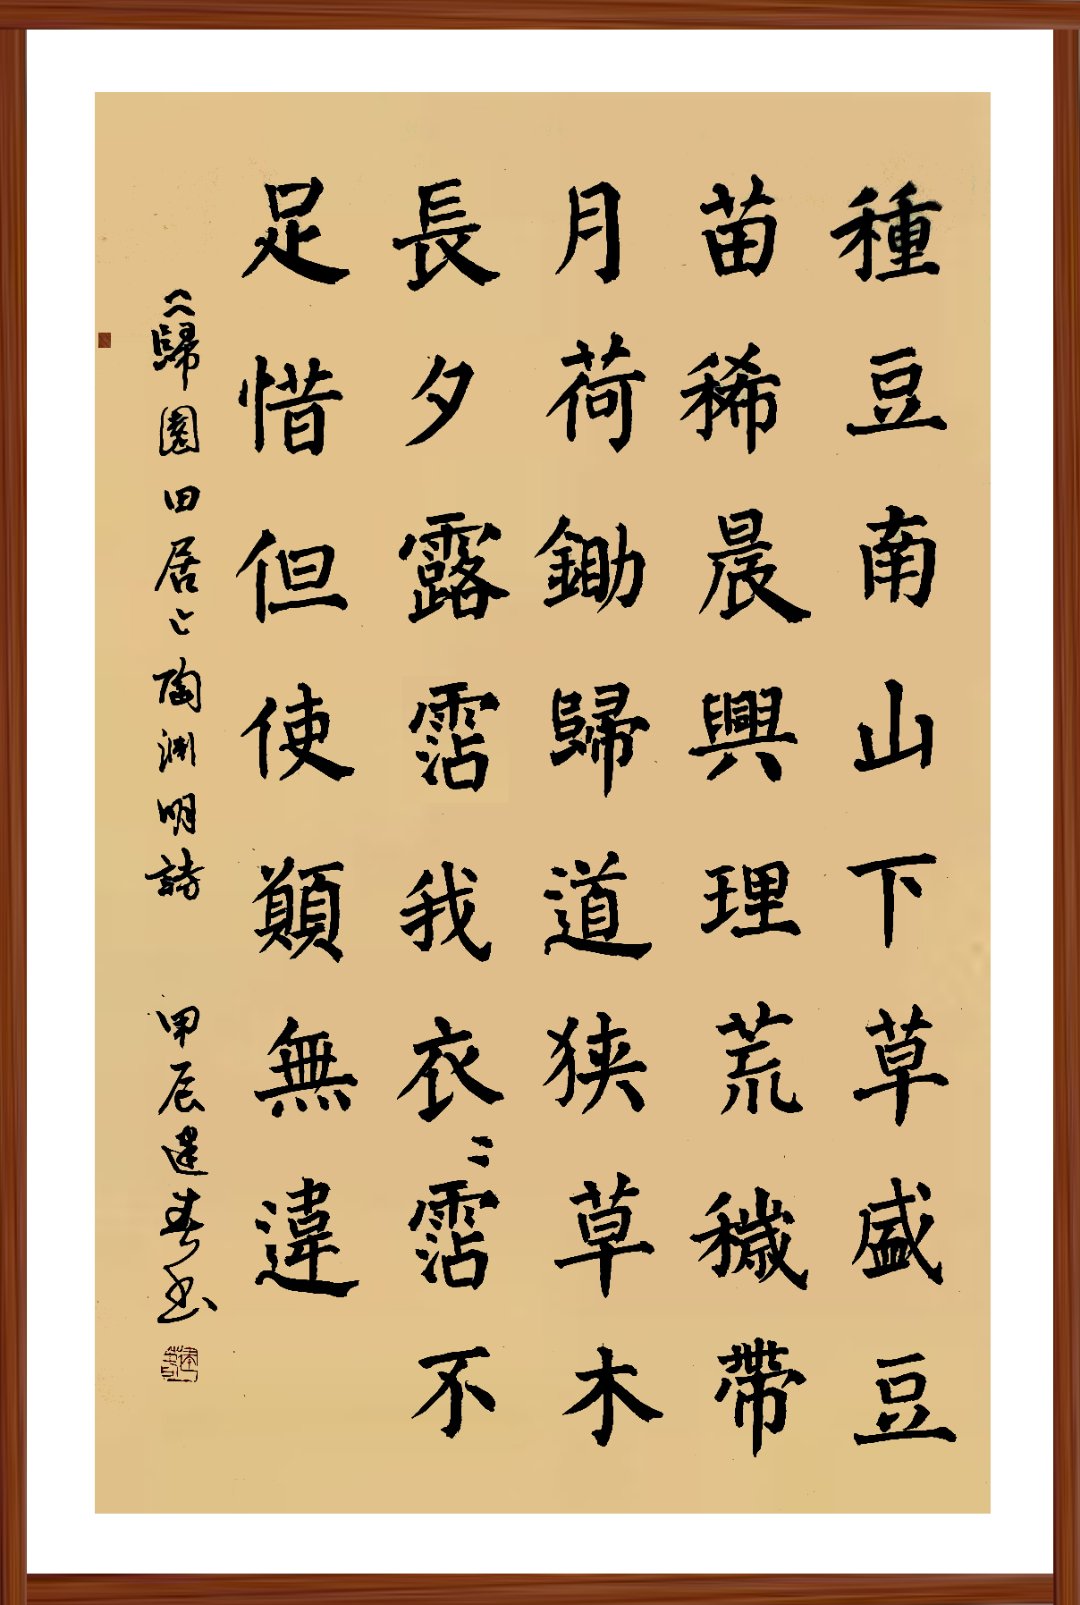 種豆南山下草盛豆
苗稀晨興理荒穢帶
月荷鋤歸道狹草木
長夕露霑我衣二霑不
足惜但使願無違
《歸園田居》陶淵明詩 甲辰建春書